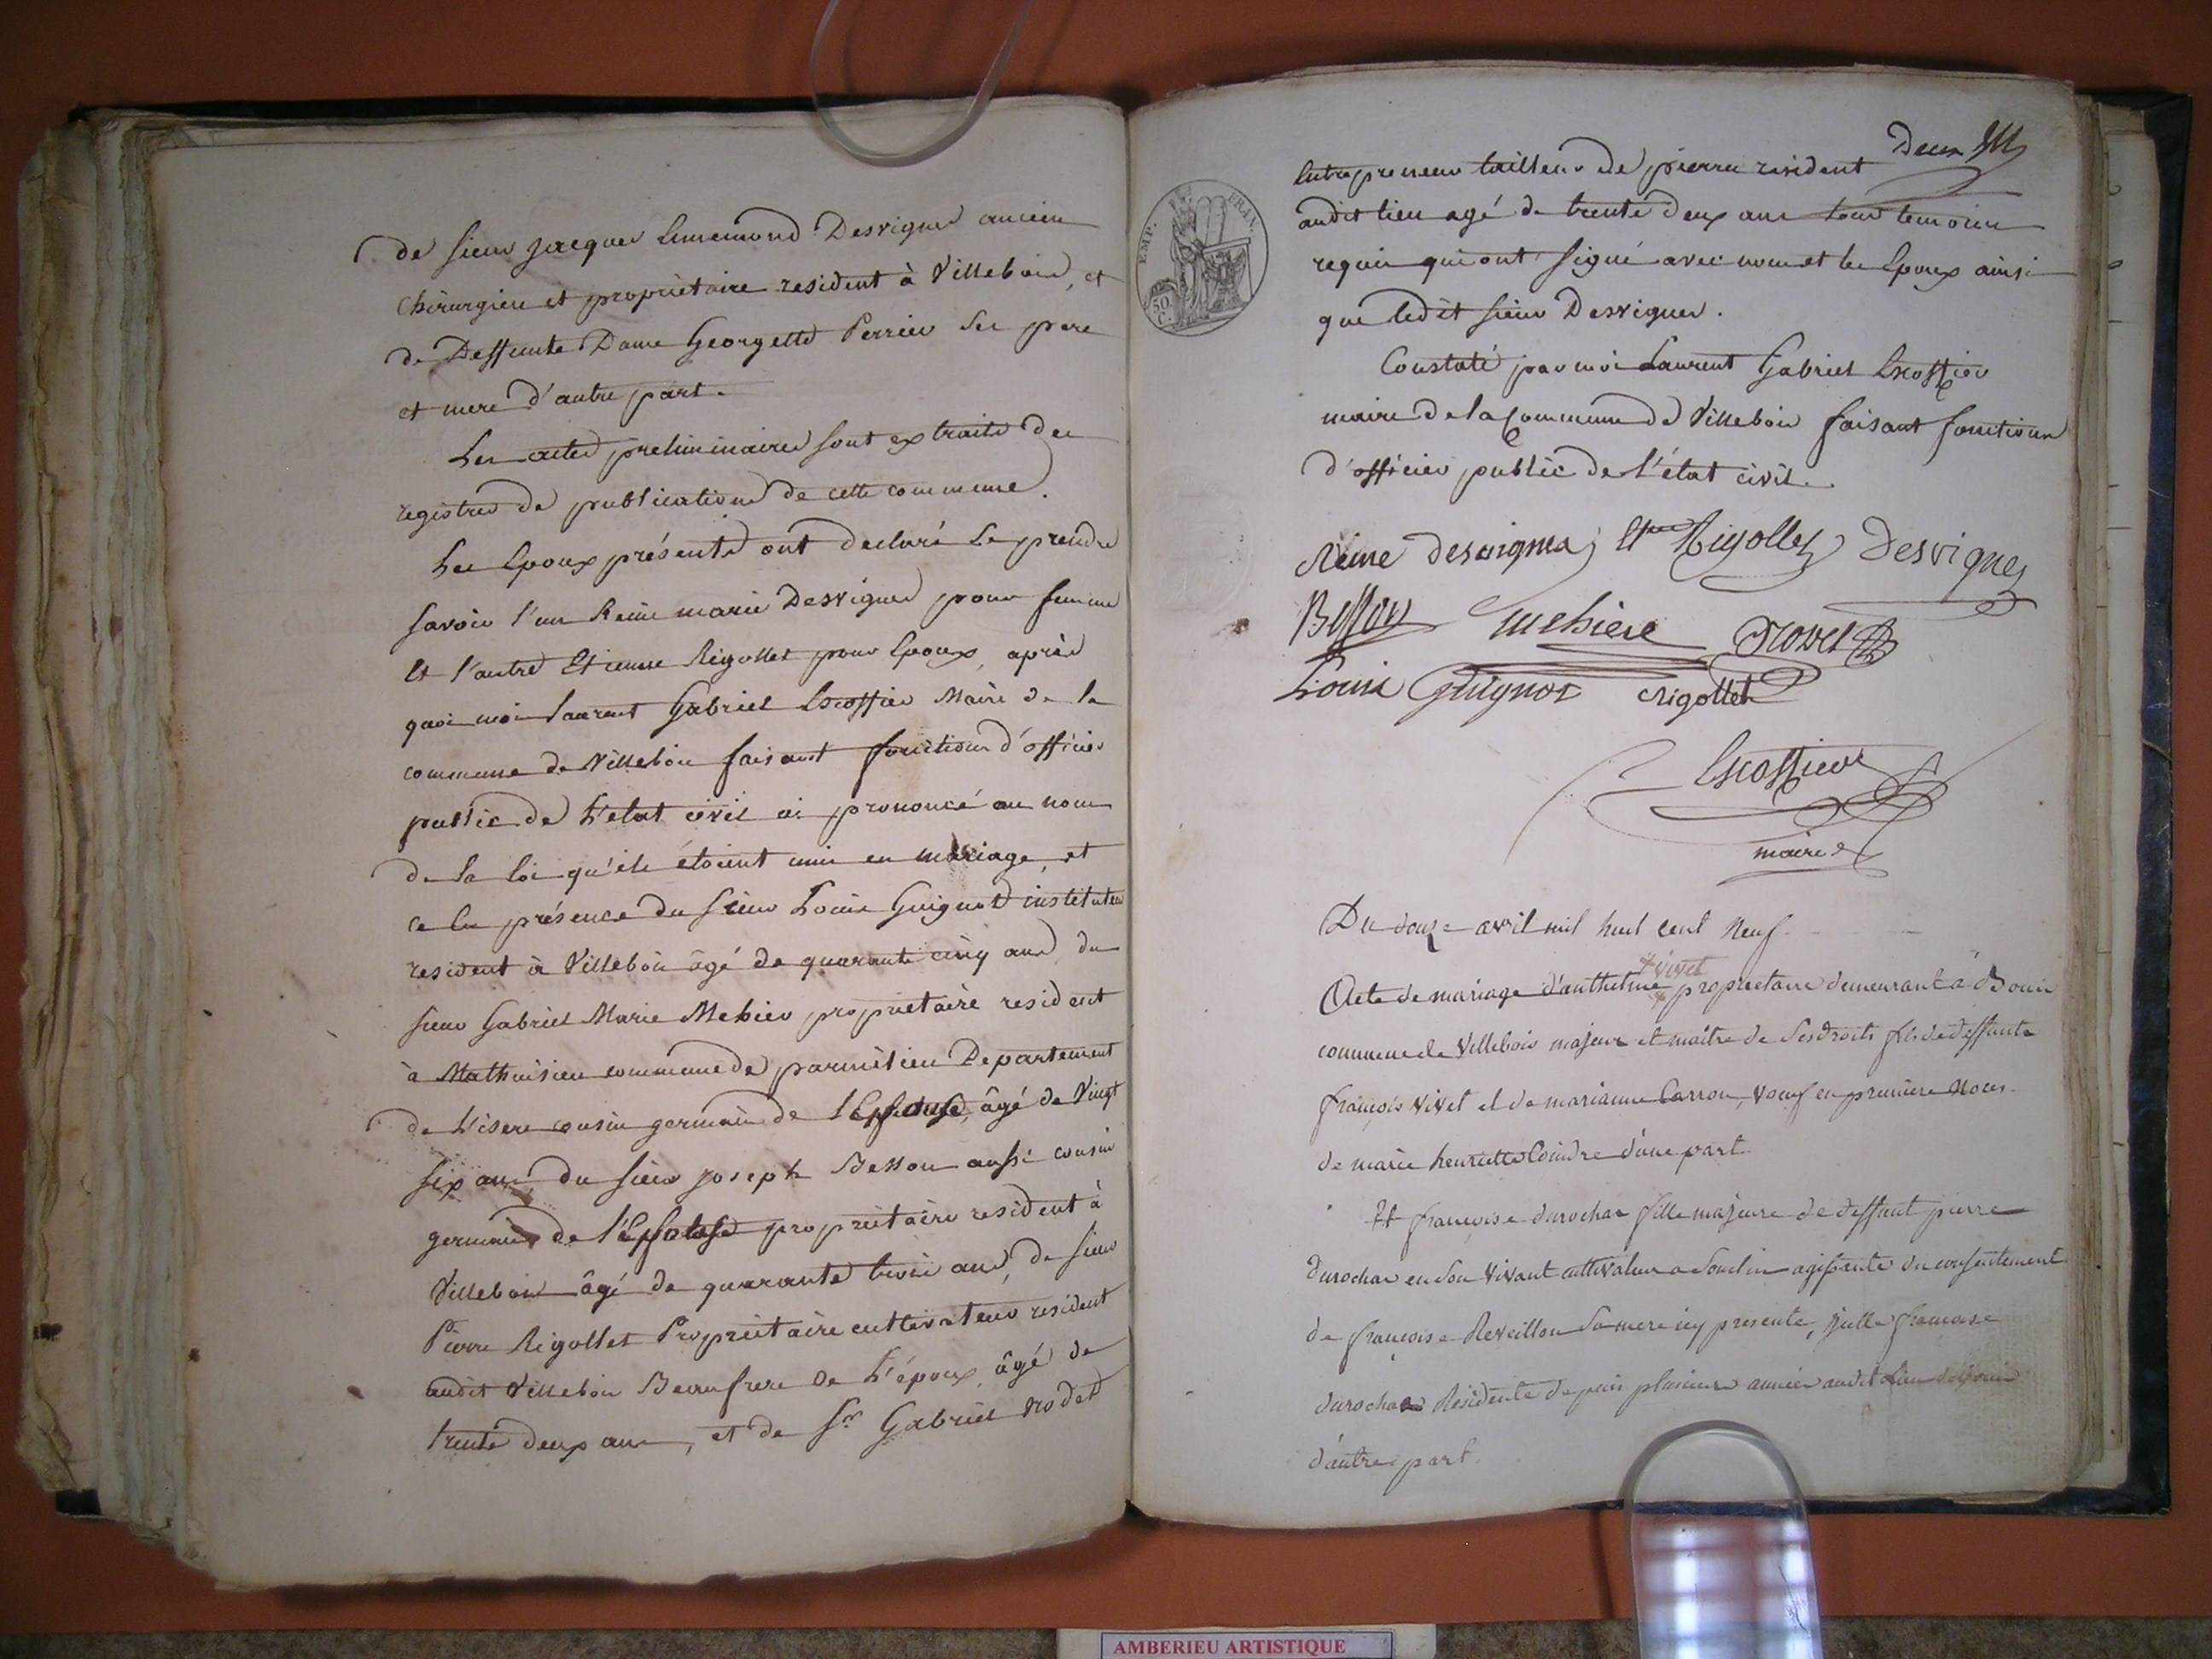 de sieur jacques Desvignes ancien
chirurgien et propriétaire resident à Villebois, et
de Deffunte Dame Georgette Perrier ses pere
et mere d'autre part.
Les actes preliminaires sont extraits des
registres de publications de cette commune.
Les Epoux présents ont declaré se prendre
savoir l'un Reine marie Desvignes pour femme
Et l'autre Etienne Rigollet pour Epoux, après
quoi moi Laurent Gabriel Escoffier Maire de la
commune de Villebois faisant fonctions d'officier
public de l'etat civil ai prononcé au nom
de la loi qu'ils étoient unis en mariage, et
ce en présence du sieur Louis Guignot instituteur
resident à Villebois âgé de quarante cinq ans, du
sieur Gabriel Marie Mehier propriétaire resident
à commune de parmilieu Departement
de l'isere cousin germain de l'Epouse, âgé de Vingt
six ans, du sieur joseph Besson aussi cousin
germain de l'Epouse propriétaire resident à
Villebois âgé de quarante trois ans, de sieur
Pierre Rigollet Propriétaire cultivateur resident
audit Villebois Beaufrere de l'époux, âgé de
trente deux ans, et de Sr Gabriel
Deux
Entrepreneur tailleur de pierre resident
audit lieu agé de trente deux ans tous temoins
requis qui ont signé avec nous et les Epoux ainsi
que ledit sieur Desvignes.
Constaté par moi Laurent Gabriel Escoffier
maire de la Commune de Villebois faisant fonctions
d'officier public de l'état civil.
EMP. FRAN.
50 C.
Reine desvignes Etne Rigollet Desvignes
Besson Mehiere
Louis Guignot Rigollet
Escoffier
maire
Du douze avril mil huit cent Neuf.
+ vivet
Acte de mariage d'anthelme + propriétaire demeurant à Bouis
commune de Villebois majeur et maître de ses droits fils de deffunts
françois Vivet et de marianne Carron, veuf en première noces
de marie henriette Coindre d'une part.
Et françoise durochar fille majeure de deffunt pierre
durochar en son vivant cultivateur a Souclin agissante du consentement
de françoise Reveillon sa mere icy presente, françoise
durochar Residente depuis plusieurs années audit Lieu de Bouis
d'autre part.
AMBERIEU ARTISTIQUE